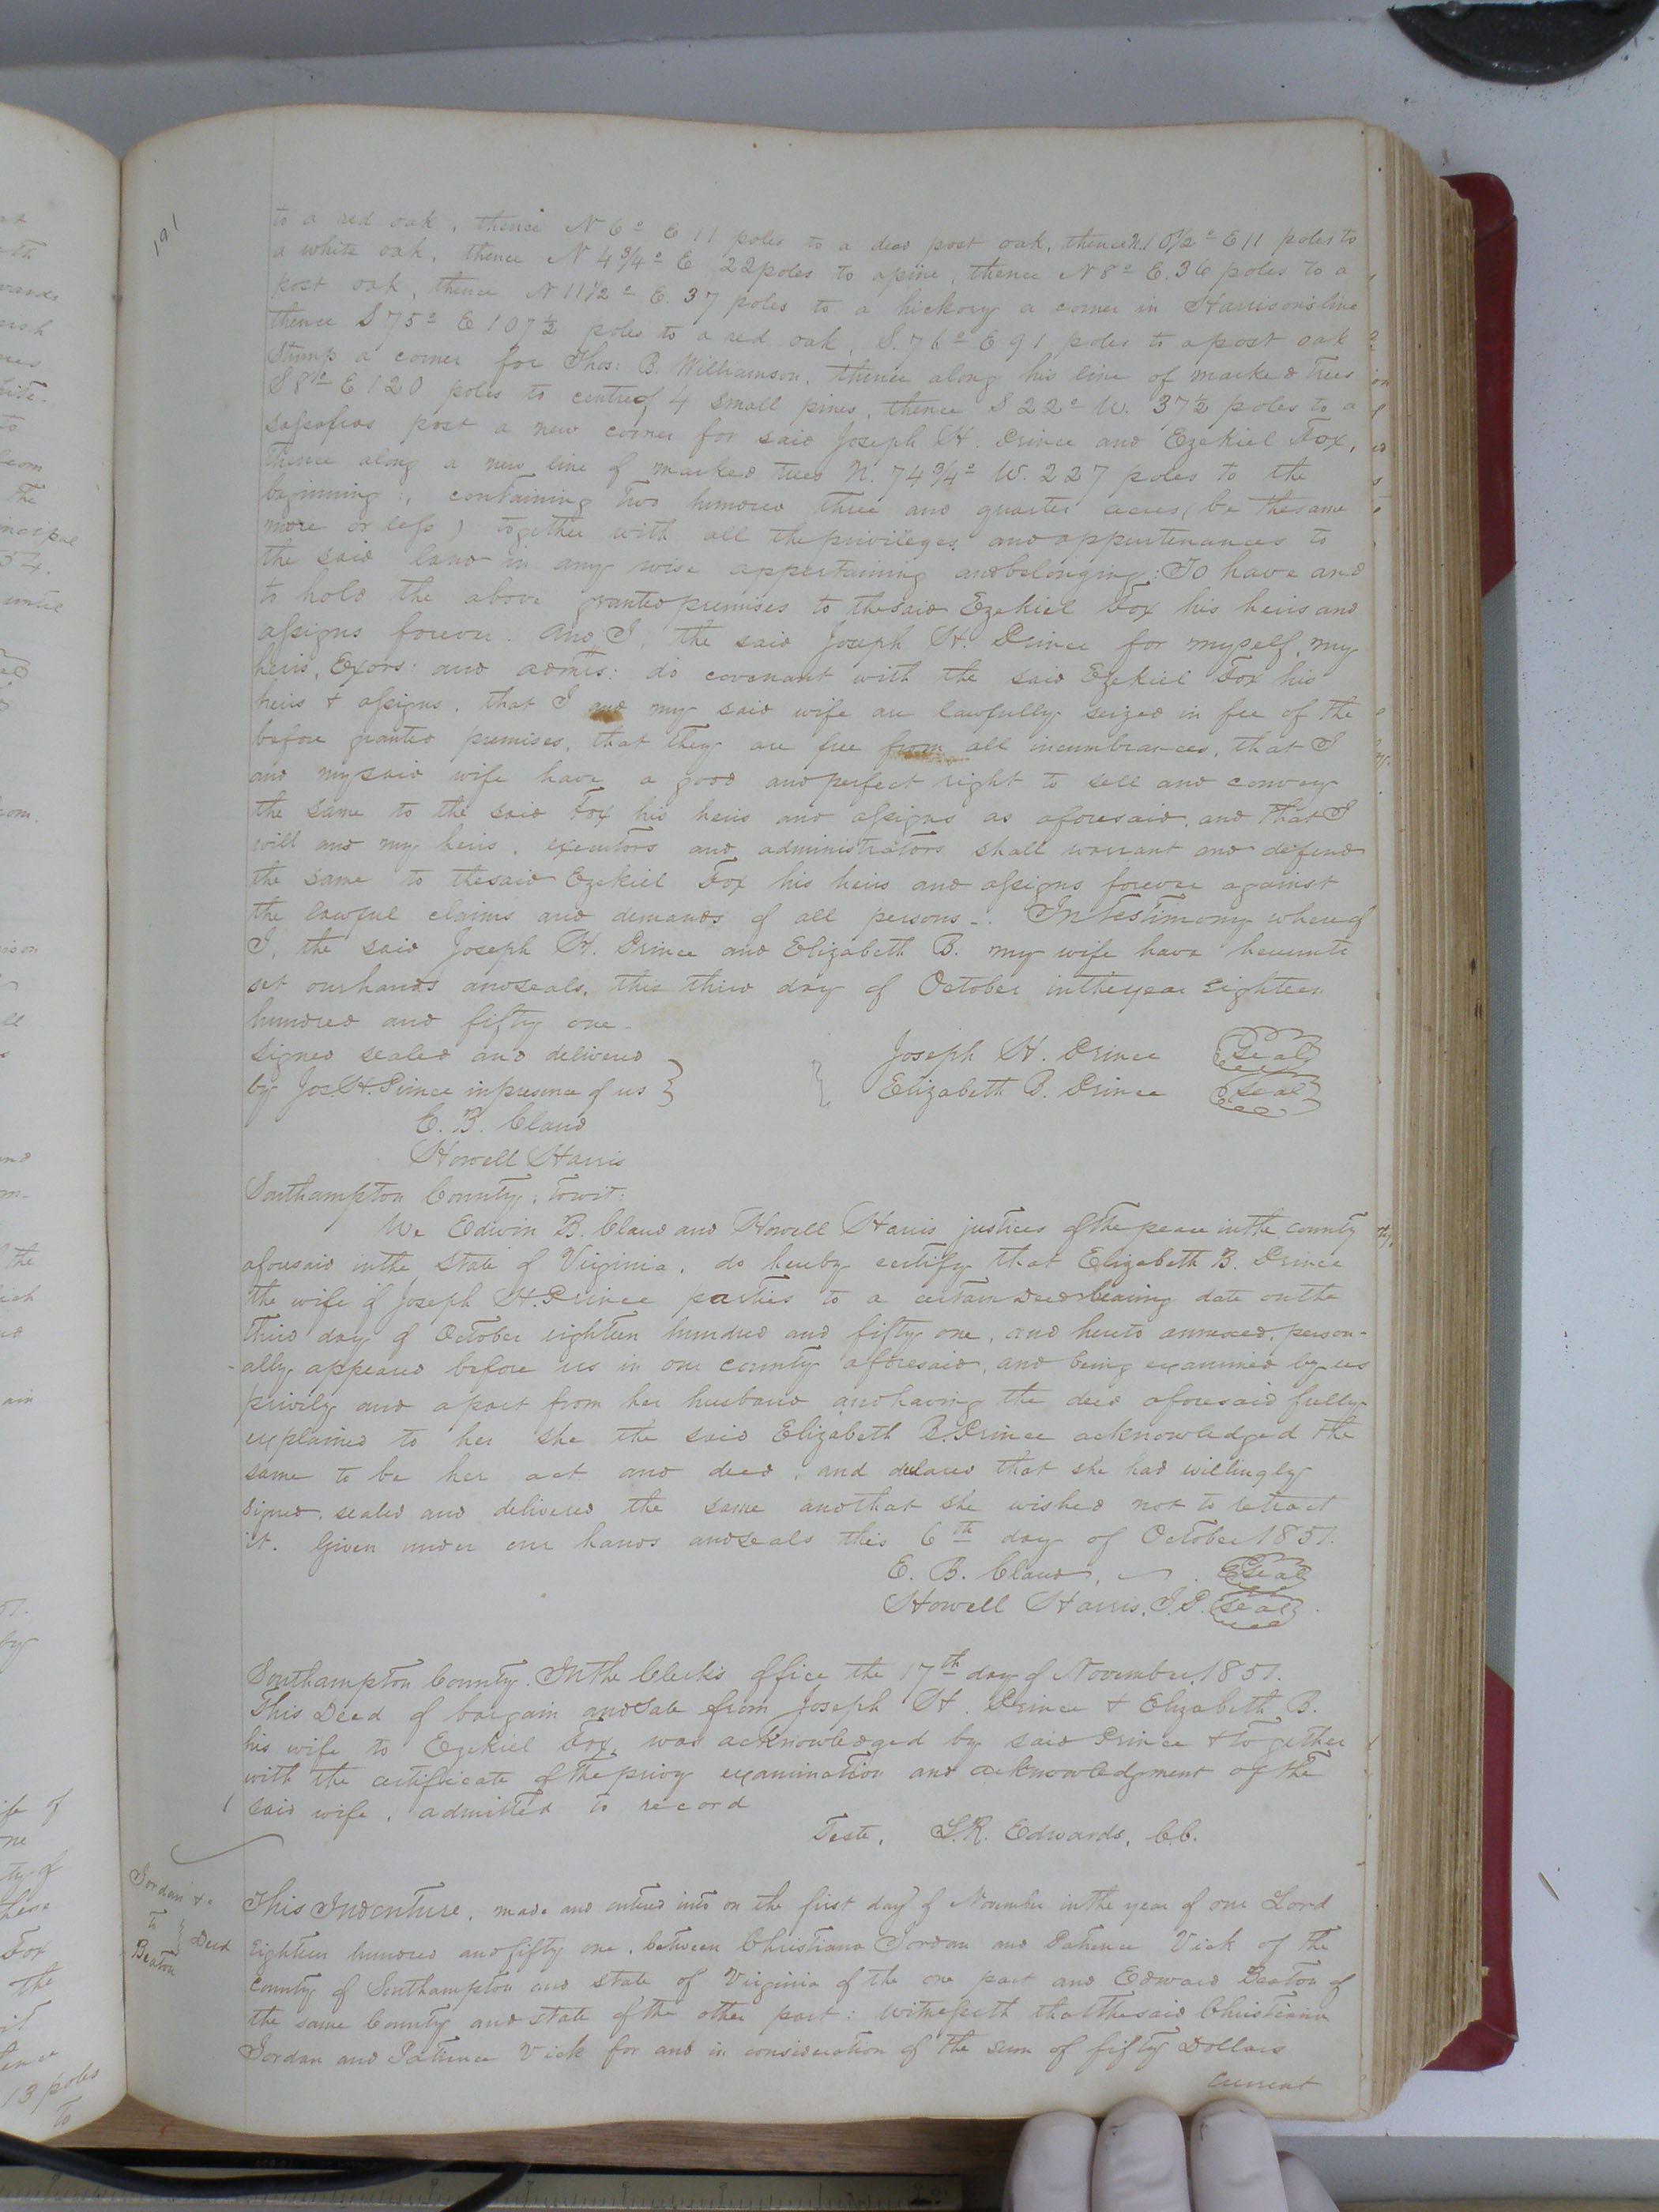 191
to a red oak, thence N 6º E 11 poles to a dead post oak, thence N. 10 1/2º E 11 poles to
a white oak, thence N 4 3/4º E 22 poles to a pine, thence N 8º E. 36 poles to a
post oak, thence N 11 1/2º E. 37 poles to a hickory a corner in Harrison's line
thence S 75º E 107 1/2 poles to a red oak, S. 76º E 91 poles to a post oak
Stump a corner for Thos: B. Williamson, thence along his line of marked trees
S 8º E 120 poles to centre of 4 small pines, thence S 22º W. 37 1/2 poles to a
sassafras post a new corner for said Joseph H. Prince and Ezekiel Fox,
Thence along a new line of marked trees N. 74 3/4º W. 227 poles to the
beginning, containing two hundred three and quarter acres (be the same
more or less) together with all the privileges and appurtenances to
the said land in any wise appertaining and belonging: To have and
to hold the above granted premises to the said Ezekiel Fox his heirs and
assigns forever. And I, the said Joseph H. Prince for myself, my
heirs, Exors: and admrs: do covenant with the said Ezekiel Fox his
heirs & assigns, that I and my said wife are lawfully seized in fee of the
before granted premises, that they are free from all incumbrances, that I
and my said wife have a good and perfect right to sell and convey
the same to the said Fox his heirs and assigns as aforesaid, and that I
will and my heirs, executors and administrators shall warrant and defend
the same to the said Ezekiel Fox his heirs and assigns forever against
the lawful claims and demands of all persons. In Testimony whereof
I, the said Joseph H. Prince and Elizabeth B. my wife have hereunto
set our hands and seals, this third day of October in the year eighteen
hundred and fifty one.
Signed sealed and delivered Joseph H. Prince Seal
by Jos. H. Prince in presence of us } { Elizabeth B. Prince Seal
E. B. Claud
Howell Harris
Southampton County, towit:
We Edwin B. Claud and Howell Harris justices of the peace in the county
aforesaid in the State of Virginia, do hereby certify that Elizabeth B. Prince
the wife of Joseph H. Prince parties to a certain Deed bearing date on the
third day of October eighteen hundred and fifty one, and hereto annexed, person-
ally appeared before us in our county aforesaid, and being examined by us
privily and apart from her husband and having the deed aforesaid fully
explained to her she the said Elizabeth B. Prince acknowledged the
same to be her act and deed, and declared that she had willingly
signed, sealed and delivered the same and that she wished not to retract
it. Given under our hands and seals this 6th day of October 1851.
E. B. Claud, Seal
Howell Harris, J.P. Seal
Southampton County. In the Clerk's office the 17th day of November, 1851.
This Deed of bargain and sale from Joseph H. Prince & Elizabeth B.
his wife to Ezekiel Fox, was acknowledged by said Prince & together
with the certificate of the privy examination and acknowledgment of the
said wife, admitted to record
Teste, L.R. Edwards, C.C.
Jordan &c
to } Deed
Beaton
This Indenture, made and entered into on the first day of November in the year of our Lord
Eighteen hundred and fifty one, between Christiana Jordan and Patience Vick of the
County of Southampton and state of Virginia of the one part and Edward Beaton of
the same County and state of the other part: Witnesseth that the said Christiana
Jordan and Patience Vick for and in consideration of the sum of fifty Dollars
current